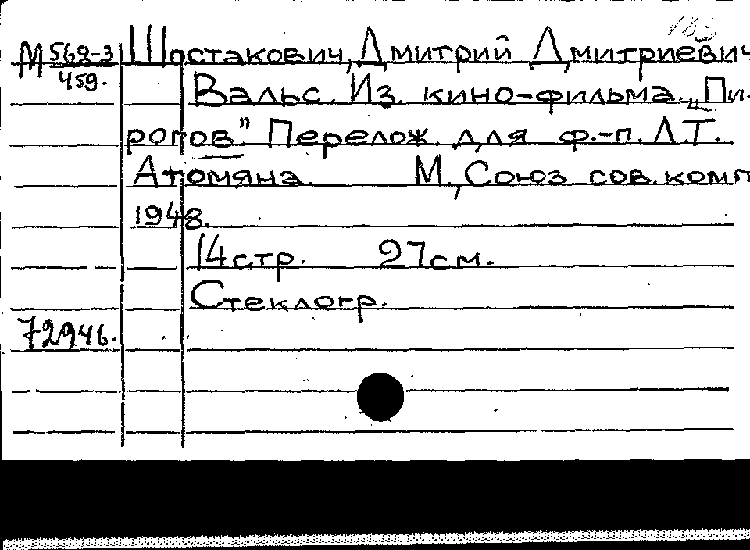 185
М 568-3 Шостакович, Дмитрий Дмитриевич
459.
Вальс. Из кино-фильма „Пи-
рогов". Перелож. для ф.-п. Л.Т.
Атомяна М., Союз сов. комп
1948.
14 стр. 27 см.
Стеклогр.
72946.